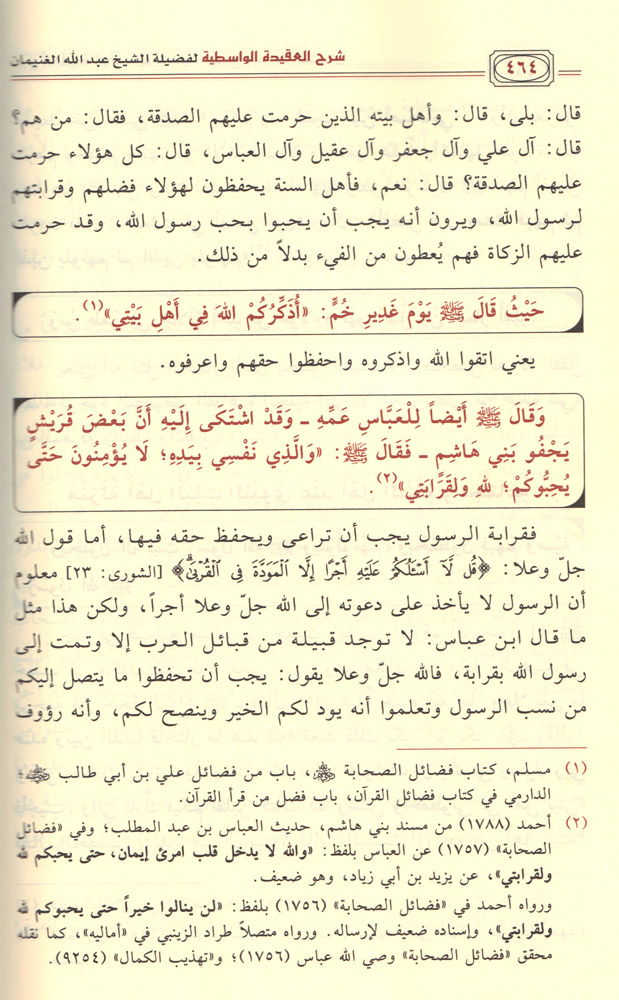 ٤٦٤
شرح العقيدة الواسطية لفضيلة الشيخ عبد الله الغنيمان
قال: بلى، قال: وأهل بيته الذين حرمت عليهم الصدقة، فقال: من هم؟
قال: آل علي وآل جعفر وآل عقيل وآل العباس، قال: كل هؤلاء حرمت
عليهم الصدقة؟ قال: نعم، فأهل السنة يحفظون لهؤلاء فضلهم وقرابتهم
لرسول الله، ويرون أنه يجب أن يحبوا بحب رسول الله، وقد حرمت
عليهم الزكاة فهم يُعطون من الفيء بدلاً من ذلك.
حَيْثُ قَالَ ﷺ يَوْمَ غَدِيرِ خُمٍّ: «أُذَكِّرُكُمْ اللهَ فِي أَهْلِ بَيْتِي»(١).
يعني اتقوا الله واذكروه واحفظوا حقهم واعرفوه.
وَقَالَ ﷺ أَيْضاً لِلْعَبَّاسِ عَمِّهِ ـ وَقَدْ اشْتَكَى إِلَيْهِ أَنَّ بَعْضَ قُرَيْشٍ
يَجْفُو بَنِي هَاشِمٍ ـ فَقَالَ ﷺ: «وَالَّذِي نَفْسِي بِيَدِهِ؛ لَا يُؤْمِنُونَ حَتَّى
يُحِبُّوكُمْ؛ للهِ وَلِقَرَابَتِي»(٢).
فقرابة الرسول يجب أن تراعى ويحفظ حقه فيها، أما قول الله
جلّ وعلا: ﴿قُل لَّا أَسْـَٔلُكُمْ عَلَيْهِ أَجْرًا إِلَّا الْمَوَدَّةَ فِى الْقُرْبَىٰ﴾ [الشورى: ٢٣] معلوم
أن الرسول لا يأخذ على دعوته إلى الله جلّ وعلا أجراً، ولكن هذا مثل
ما قال ابن عباس: لا توجد قبيلة من قبائل العرب إلا وتمت إلى
رسول الله بقرابة، فالله جلّ وعلا يقول: يجب أن تحفظوا ما يتصل إليكم
من نسب الرسول وتعلموا أنه يود لكم الخير وينصح لكم، وأنه رؤوف
(١) مسلم، كتاب فضائل الصحابة ﷺ، باب من فضائل علي بن أبي طالب ﷺ؛
الدارمي في كتاب فضائل القرآن، باب فضل من قرأ القرآن.
(٢) أحمد (١٧٨٨) من مسند بني هاشم، حديث العباس بن عبد المطلب؛ وفي «فضائل
الصحابة» (١٧٥٧) عن العباس بلفظ: «والله لا يدخل قلب امرئ إيمان، حتى يحبكم لله
ولقرابتي»، عن يزيد بن أبي زياد، وهو ضعيف.
ورواه أحمد في «فضائل الصحابة» (١٧٥٦) بلفظ: «لن ينالوا خيراً حتى يحبوكم لله
ولقرابتي»، وإسناده ضعيف لإرساله. ورواه متصلاً طراد الزينبي في «أماليه»، كما نقله
محقق «فضائل الصحابة» وصي الله عباس (١٧٥٦)؛ و«تهذيب الكمال» (٩٢٥٤).